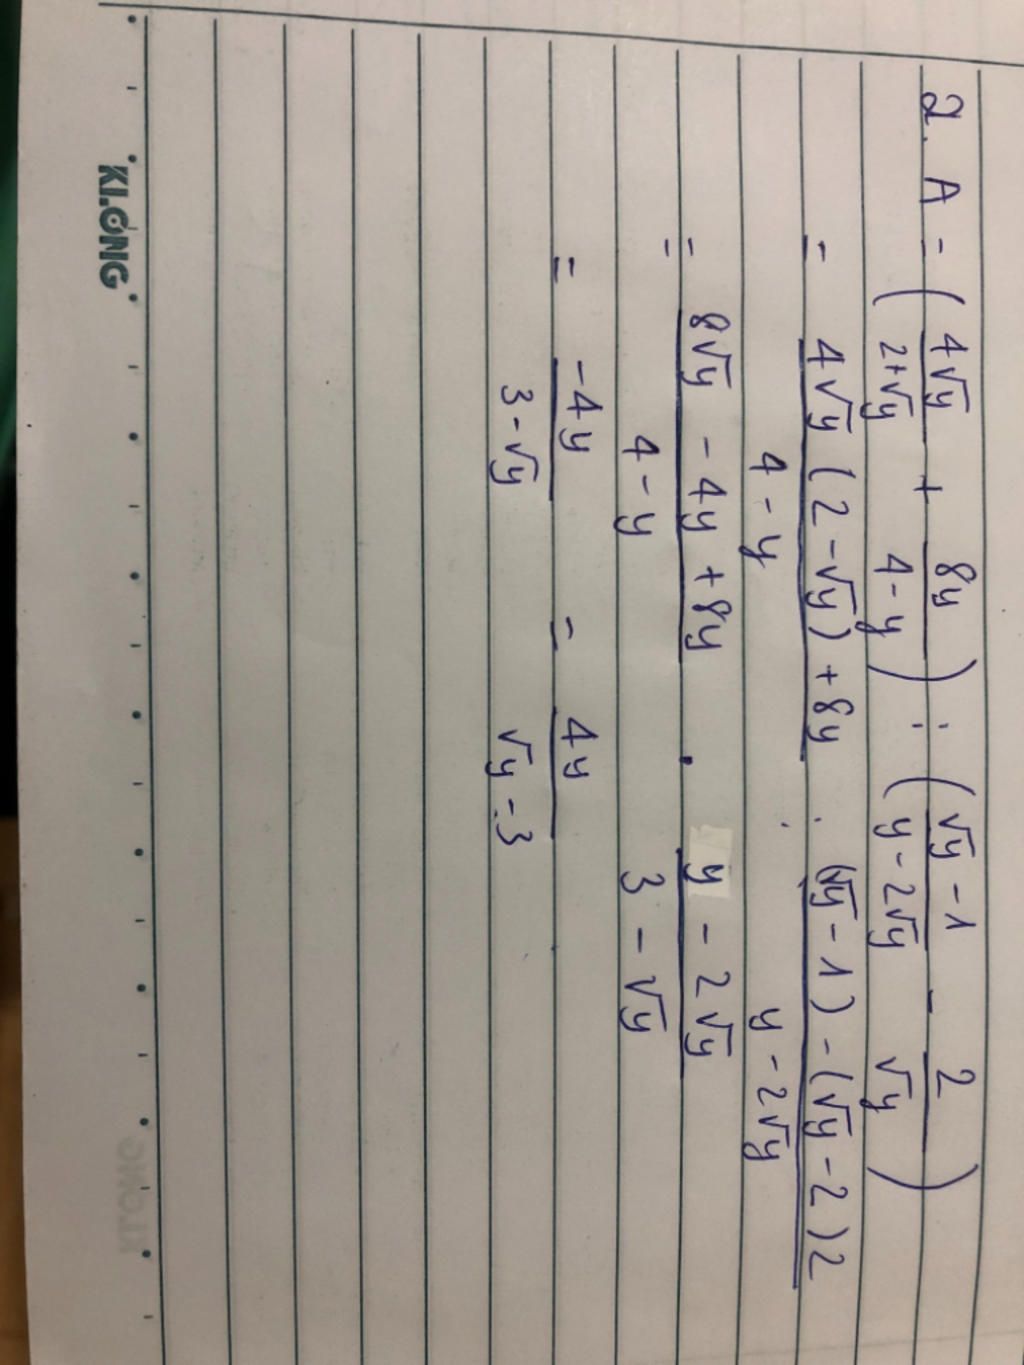 2. A = (4√y/2+√y + 8y/4-y) : (√y-1/y-2√y - 2/√y)
= 4√y(2-√y)+8y/4-y : (√y-1)-(√y-2)2/y-2√y
= 8√y-4y+8y/4-y . y-2√y/3-√y
= -4y/3-√y = 4y/√y-3
KLONG